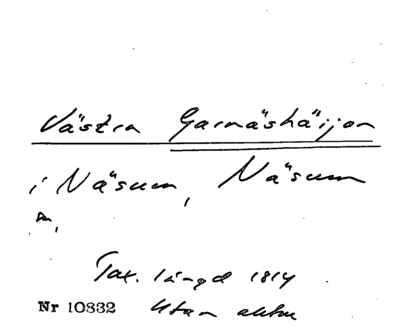 Västra Garnäshäijon
i Näsum, Näsum
Tax. längd 1814
Nr 10832 Utan akter